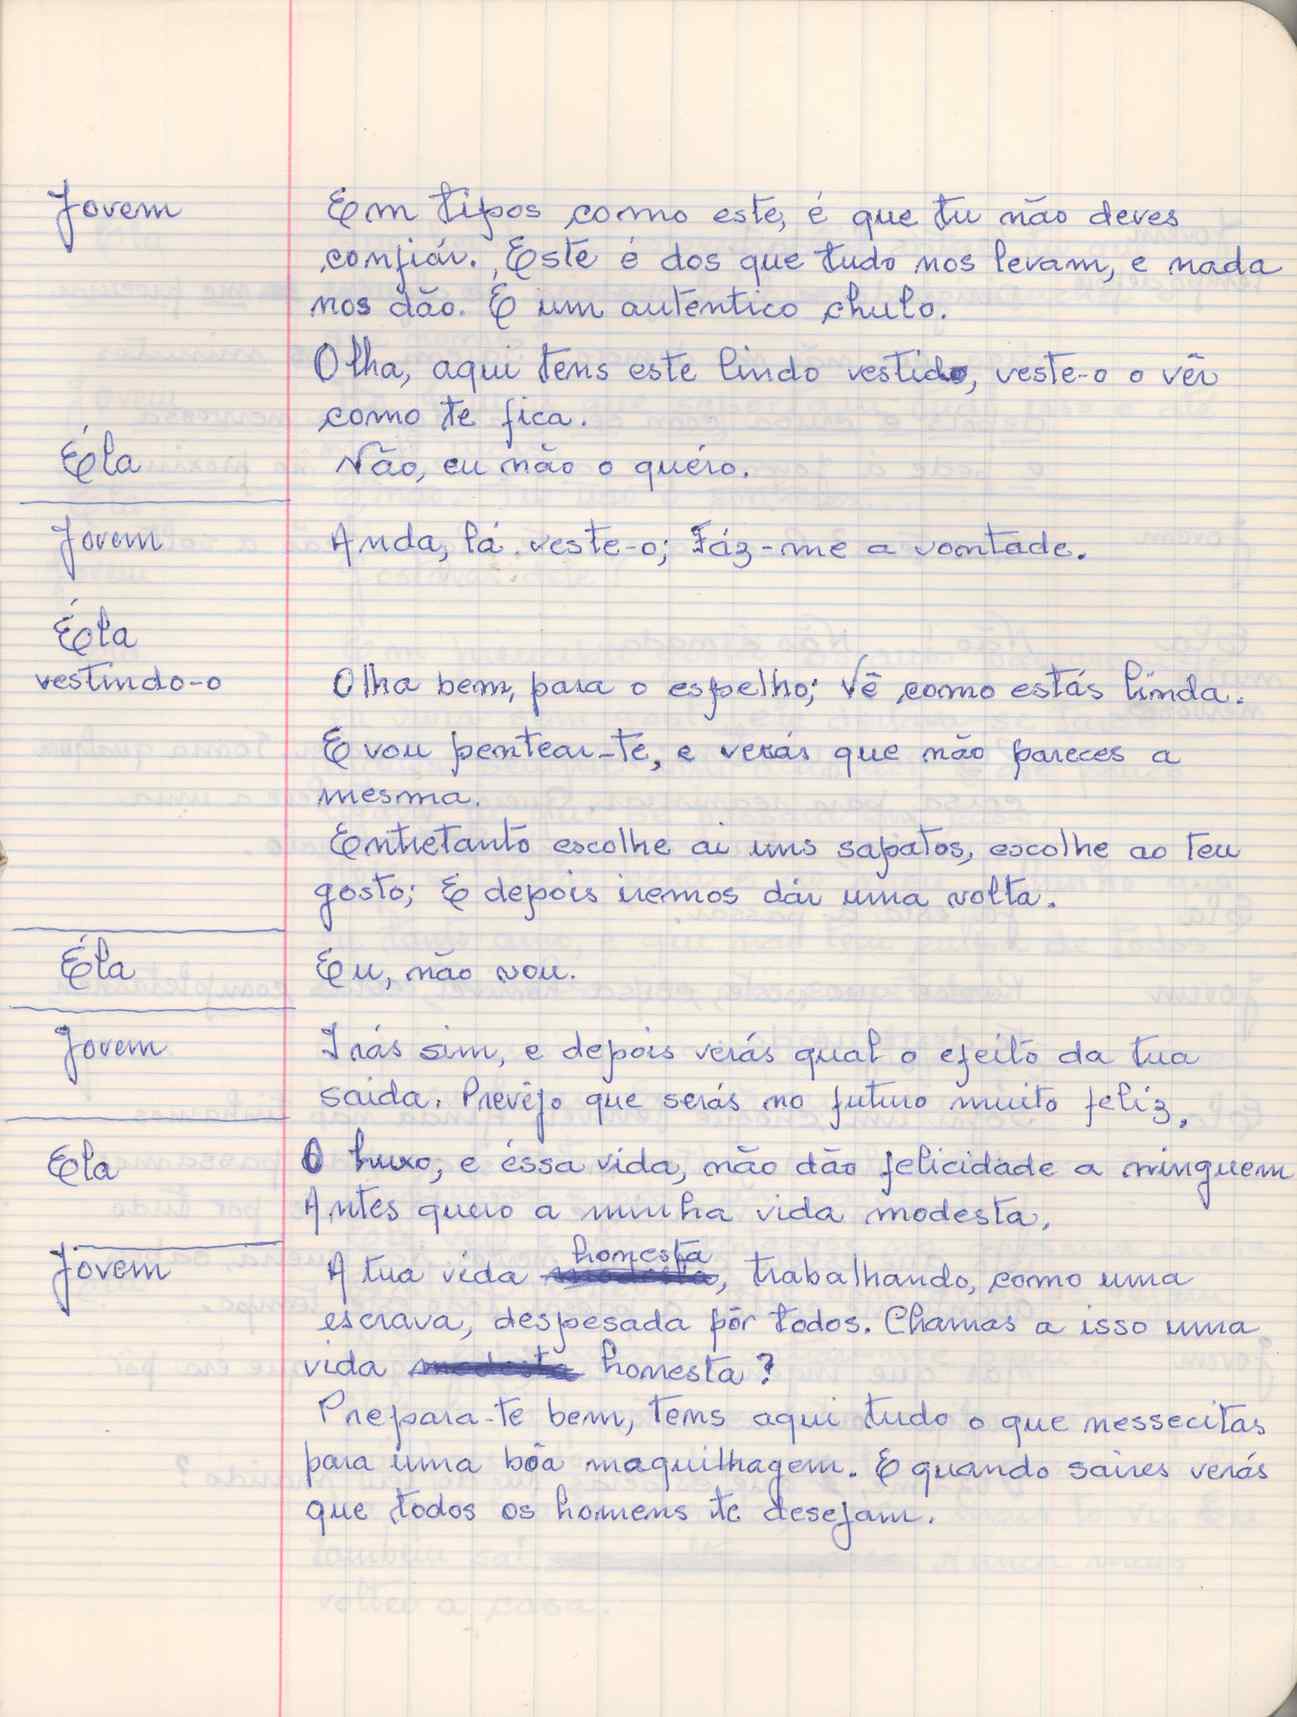 Jovem Em tipos como este, é que tu não deves
confiár. Este é dos que tudo nos levam, e nada
nos dão. E um autentico chulo.
Olha, aqui tens este lindo vestido, veste-o o vêr
como te fica.
Éla Não, eu não o quéro.
Jovem Anda, lá veste-o; Fáz-me a vontade.
Éla
vestindo-o Olha bem, para o espelho; Vê como estás linda.
E vou pentear-te, e verás que não pareces a
mesma.
Entretanto escolhe ai uns sapatos, escolhe ao teu
gosto; E depois iremos dár uma volta.
Éla Eu, não vou.
Jovem Irás sim, e depois verás qual o efeito da tua
saida. Prevêjo que serás no futuro muito feliz.
Ela O luxo, e éssa vida, não dão felicidade a ninguem
Antes quero a minha vida modesta.
honesta
Jovem A tua vida modesta, trabalhando, como uma
escrava, despesada pôr todos. Chamas a isso uma
vida modesta honesta?
Prepara-te bem, tens aqui tudo o que nessecitas
para uma bôa maquilhagem. E quando saires verás
que todos os homens te desejam.